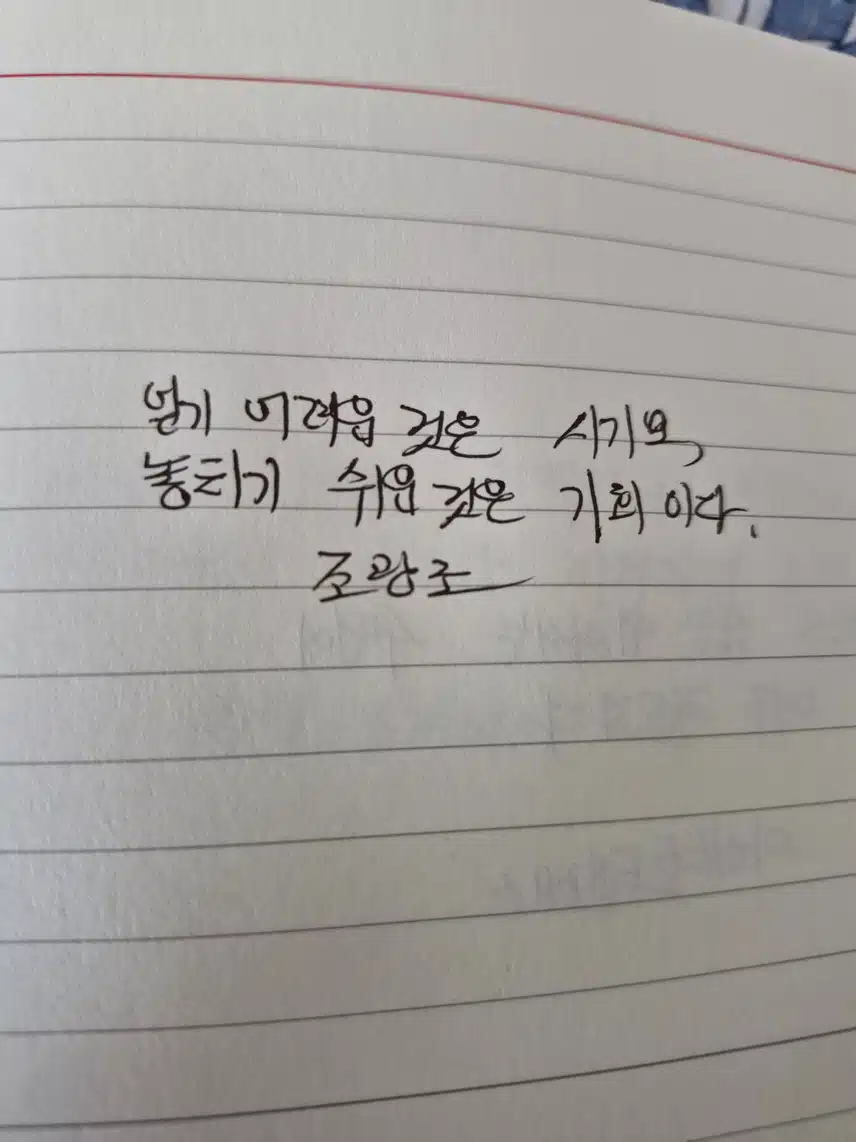 얻기 어려운 것은 시기요,
놓치기 쉬운 것은 기회이다.
조광조